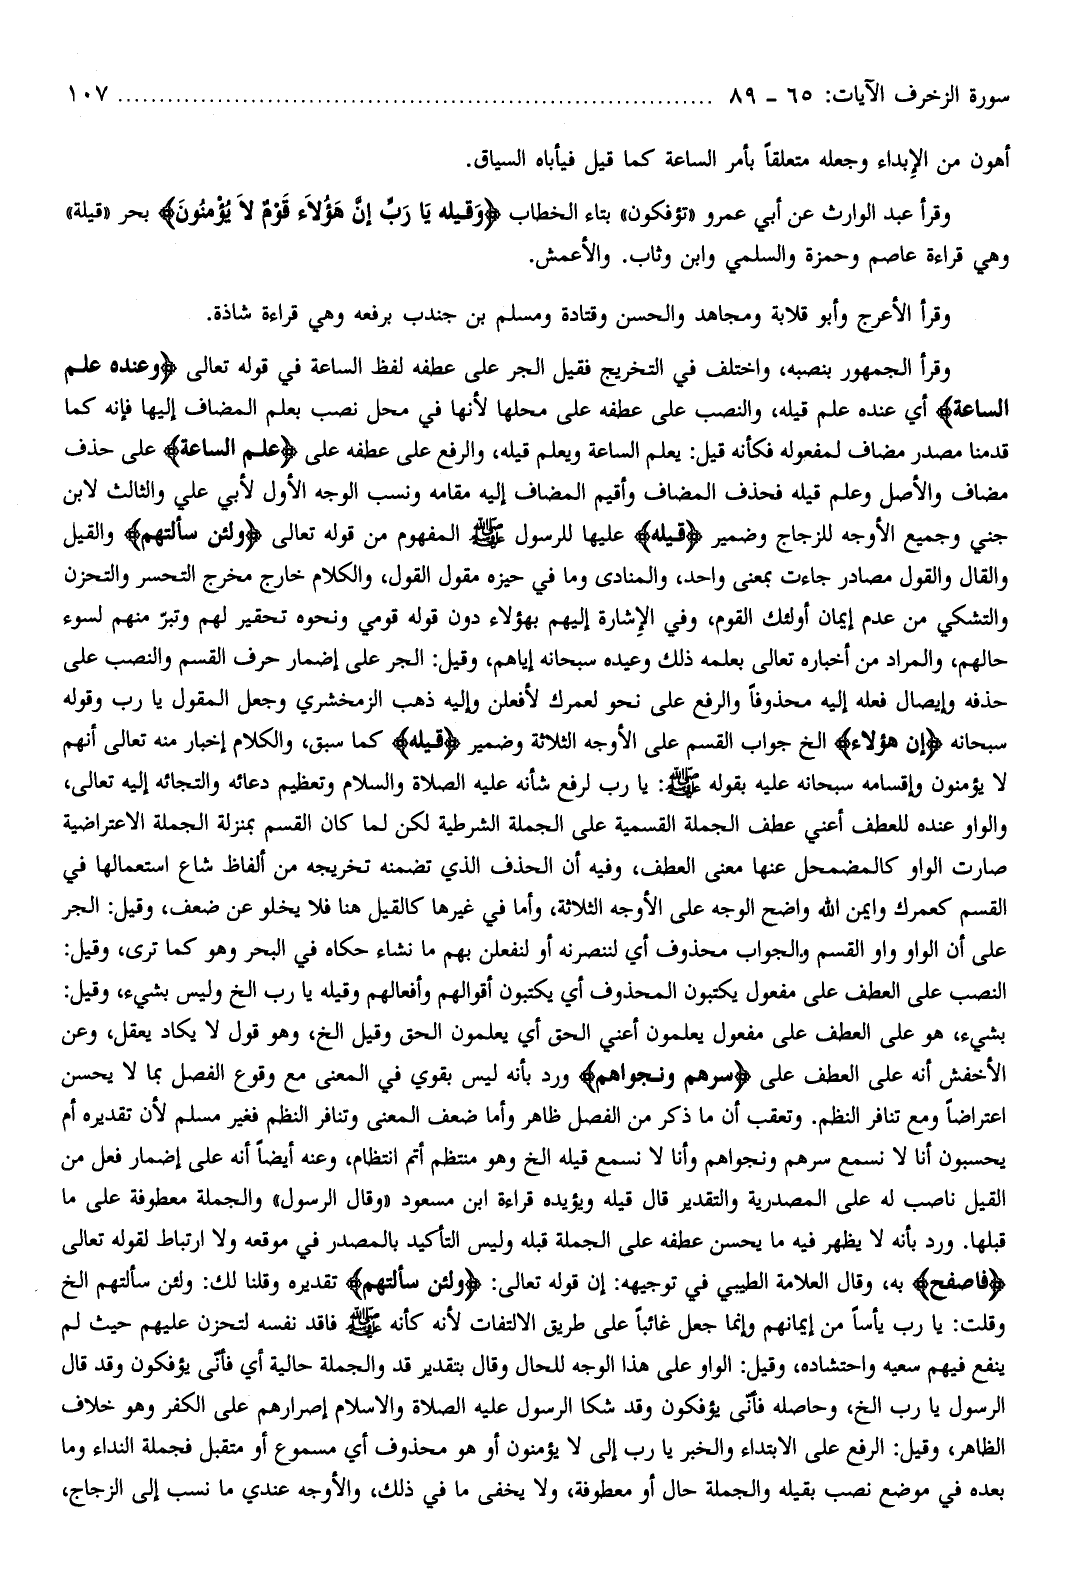 سورة الزخرف الآيات: ٦٥ - ٨٩ ........................................................................ ١٠٧
أهون من الإِبداء وجعله متعلقاً بأمر الساعة كما قيل فيأباه السياق.
وقرأ عبد الوارث عن أبي عمرو «تؤفكون» بتاء الخطاب ﴿وَقيله يَا رَبِّ إنَّ هَؤُلاَء قَوْمٌ لاَ يُؤْمنُونَ﴾ بحر «قيلة»
وهي قراءة عاصم وحمزة والسلمي وابن وثاب. والأعمش.
وقرأ الأعرج وأبو قلابة ومجاهد والحسن وقتادة ومسلم بن جندب برفعه وهي قراءة شاذة.
وقرأ الجمهور بنصبه، واختلف في التخريج فقيل الجر على عطفه لفظ الساعة في قوله تعالى ﴿وعنده علم
الساعة﴾ أي عنده علم قيله، والنصب على عطفه على محلها لأنها في محل نصب بعلم المضاف إليها فإنه كما
قدمنا مصدر مضاف لمفعوله فكأنه قيل: يعلم الساعة ويعلم قيله، والرفع على عطفه على ﴿علم الساعة﴾ على حذف
مضاف والأصل وعلم قيله فحذف المضاف وأقيم المضاف إليه مقامه ونسب الوجه الأول لأبي علي والثالث لابن
جني وجميع الأوجه للزجاج وضمير ﴿قيله﴾ عليها للرسول ﷺ المفهوم من قوله تعالى ﴿ولئن سألتهم﴾ والقيل
والقال والقول مصادر جاءت بمعنى واحد، والمنادى وما في حيزه مقول القول، والكلام خارج مخرج التحسر والتحزن
والتشكي من عدم إيمان أولئك القوم، وفي الإِشارة إليهم بهؤلاء دون قوله قومي ونحوه تحقير لهم وتبرّ منهم لسوء
حالهم، والمراد من أخباره تعالى بعلمه ذلك وعيده سبحانه إياهم، وقيل: الجر على إضمار حرف القسم والنصب على
حذفه وإيصال فعله إليه محذوفاً والرفع على نحو لعمرك لأفعلن وإليه ذهب الزمخشري وجعل المقول يا رب وقوله
سبحانه ﴿إن هؤلاء﴾ الخ جواب القسم على الأوجه الثلاثة وضمير ﴿قيله﴾ كما سبق، والكلام إخبار منه تعالى أنهم
لا يؤمنون وإقسامه سبحانه عليه بقوله ﷺ: يا رب لرفع شأنه عليه الصلاة والسلام وتعظيم دعائه والتجائه إليه تعالى،
والواو عنده للعطف أعني عطف الجملة القسمية على الجملة الشرطية لكن لما كان القسم بمنزلة الجملة الاعتراضية
صارت الواو كالمضمحل عنها معنى العطف، وفيه أن الحذف الذي تضمنه تخريجه من ألفاظ شاع استعمالها في
القسم كعمرك وايمن الله واضح الوجه على الأوجه الثلاثة، وأما في غيرها كالقيل هنا فلا يخلو عن ضعف، وقيل: الجر
على أن الواو واو القسم والجواب محذوف أي لننصرنه أو لنفعلن بهم ما نشاء حكاه في البحر وهو كما ترى، وقيل:
النصب على العطف على مفعول يكتبون المحذوف أي يكتبون أقوالهم وأفعالهم وقيله يا رب الخ وليس بشيء، وقيل:
بشيء، هو على العطف على مفعول يعلمون أعني الحق أي يعلمون الحق وقيل الخ، وهو قول لا يكاد يعقل، وعن
الأخفش أنه على العطف على ﴿سرهم ونجواهم﴾ ورد بأنه ليس بقوي في المعنى مع وقوع الفصل بما لا يحسن
اعتراضاً ومع تنافر النظم. وتعقب أن ما ذكر من الفصل ظاهر وأما ضعف المعنى وتنافر النظم فغير مسلم لأن تقديره أم
يحسبون أنا لا نسمع سرهم ونجواهم وأنا لا نسمع قيله الخ وهو منتظم أتم انتظام، وعنه أيضاً أنه على إضمار فعل من
القيل ناصب له على المصدرية والتقدير قال قيله ويؤيده قراءة ابن مسعود «وقال الرسول» والجملة معطوفة على ما
قبلها. ورد بأنه لا يظهر فيه ما يحسن عطفه على الجملة قبله وليس التأكيد بالمصدر في موقعه ولا ارتباط لقوله تعالى
﴿فاصفح﴾ به، وقال العلامة الطيبي في توجيهه: إن قوله تعالى: ﴿ولئن سألتهم﴾ تقديره وقلنا لك: ولئن سألتهم الخ
وقلت: يا رب يأساً من إيمانهم وإنما جعل غائباً على طريق الالتفات لأنه كأنه ﷺ فاقد نفسه لتحزن عليهم حيث لم
ينفع فيهم سعيه واحتشاده، وقيل: الواو على هذا الوجه للحال وقال بتقدير قد والجملة حالية أي فأنّى يؤفكون وقد قال
الرسول يا رب الخ، وحاصله فأنّى يؤفكون وقد شكا الرسول عليه الصلاة والاسلام إصرارهم على الكفر وهو خلاف
الظاهر، وقيل: الرفع على الابتداء والخبر يا رب إلى لا يؤمنون أو هو محذوف أي مسموع أو متقبل فجملة النداء وما
بعده في موضع نصب بقيله والجملة حال أو معطوفة، ولا يخفى ما في ذلك، والأوجه عندي ما نسب إلى الزجاج،